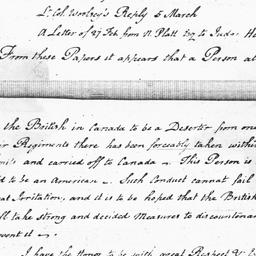 Lt Col. Worsley's Reply 5 March
A Letter of 27 Feb from N. Platt Esq to Judge
From these Papers it appears that a Person at
the British in Canada to be a Deserter from one
Regiments there has been forcebly taken within
and carried off to Canada – This Person is
to be an American – Such Conduct cannot fail
Irritation, and it is to be hoped that the British
take strong and decided Measures to discountenan
event it –
I have the Honor to be with great Respect &